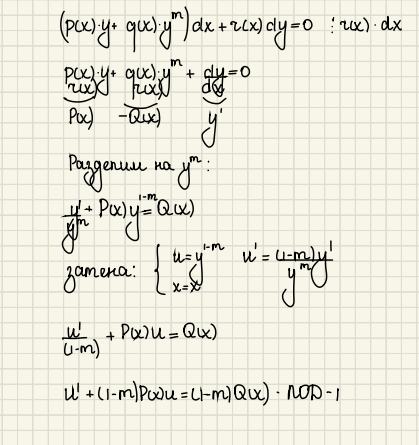 (p(x)·y + q(x)·y^m) dx + r(x) dy = 0 : r(x)·dx
p(x)·y/r(x) + q(x)·y^m/r(x) + dy/dx = 0
P(x) -Q(x) y'
Разделим на y^m:
y'/y^m + P(x) y^(1-m) = Q(x)
замена: { u = y^(1-m) u' = (1-m)y'/y^m
x = x
u'/(1-m) + P(x)u = Q(x)
u' + (1-m)P(x)u = (1-m)Q(x) - ЛОД-1